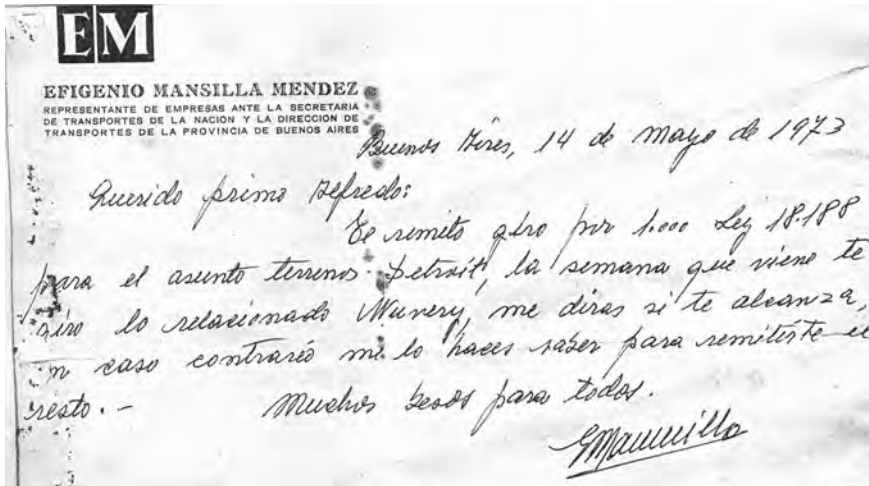 EM
EFIGENIO MANSILLA MENDEZ
REPRESENTANTE DE EMPRESAS ANTE LA SECRETARIA
DE TRANSPORTES DE LA NACION Y LA DIRECCION DE
TRANSPORTES DE LA PROVINCIA DE BUENOS AIRES
Buenos Aires, 14 de Mayo de 1973
Querido primo Alfredo:
Te remito giro por 1.000 Ley 18.188
para el asunto terrenos Detroit, la semana que viene te
giro lo relacionado me diras si te alcanza,
en caso contrario me lo haces saber para remitirte el
resto.- Muchos besos para todos.
EMansilla